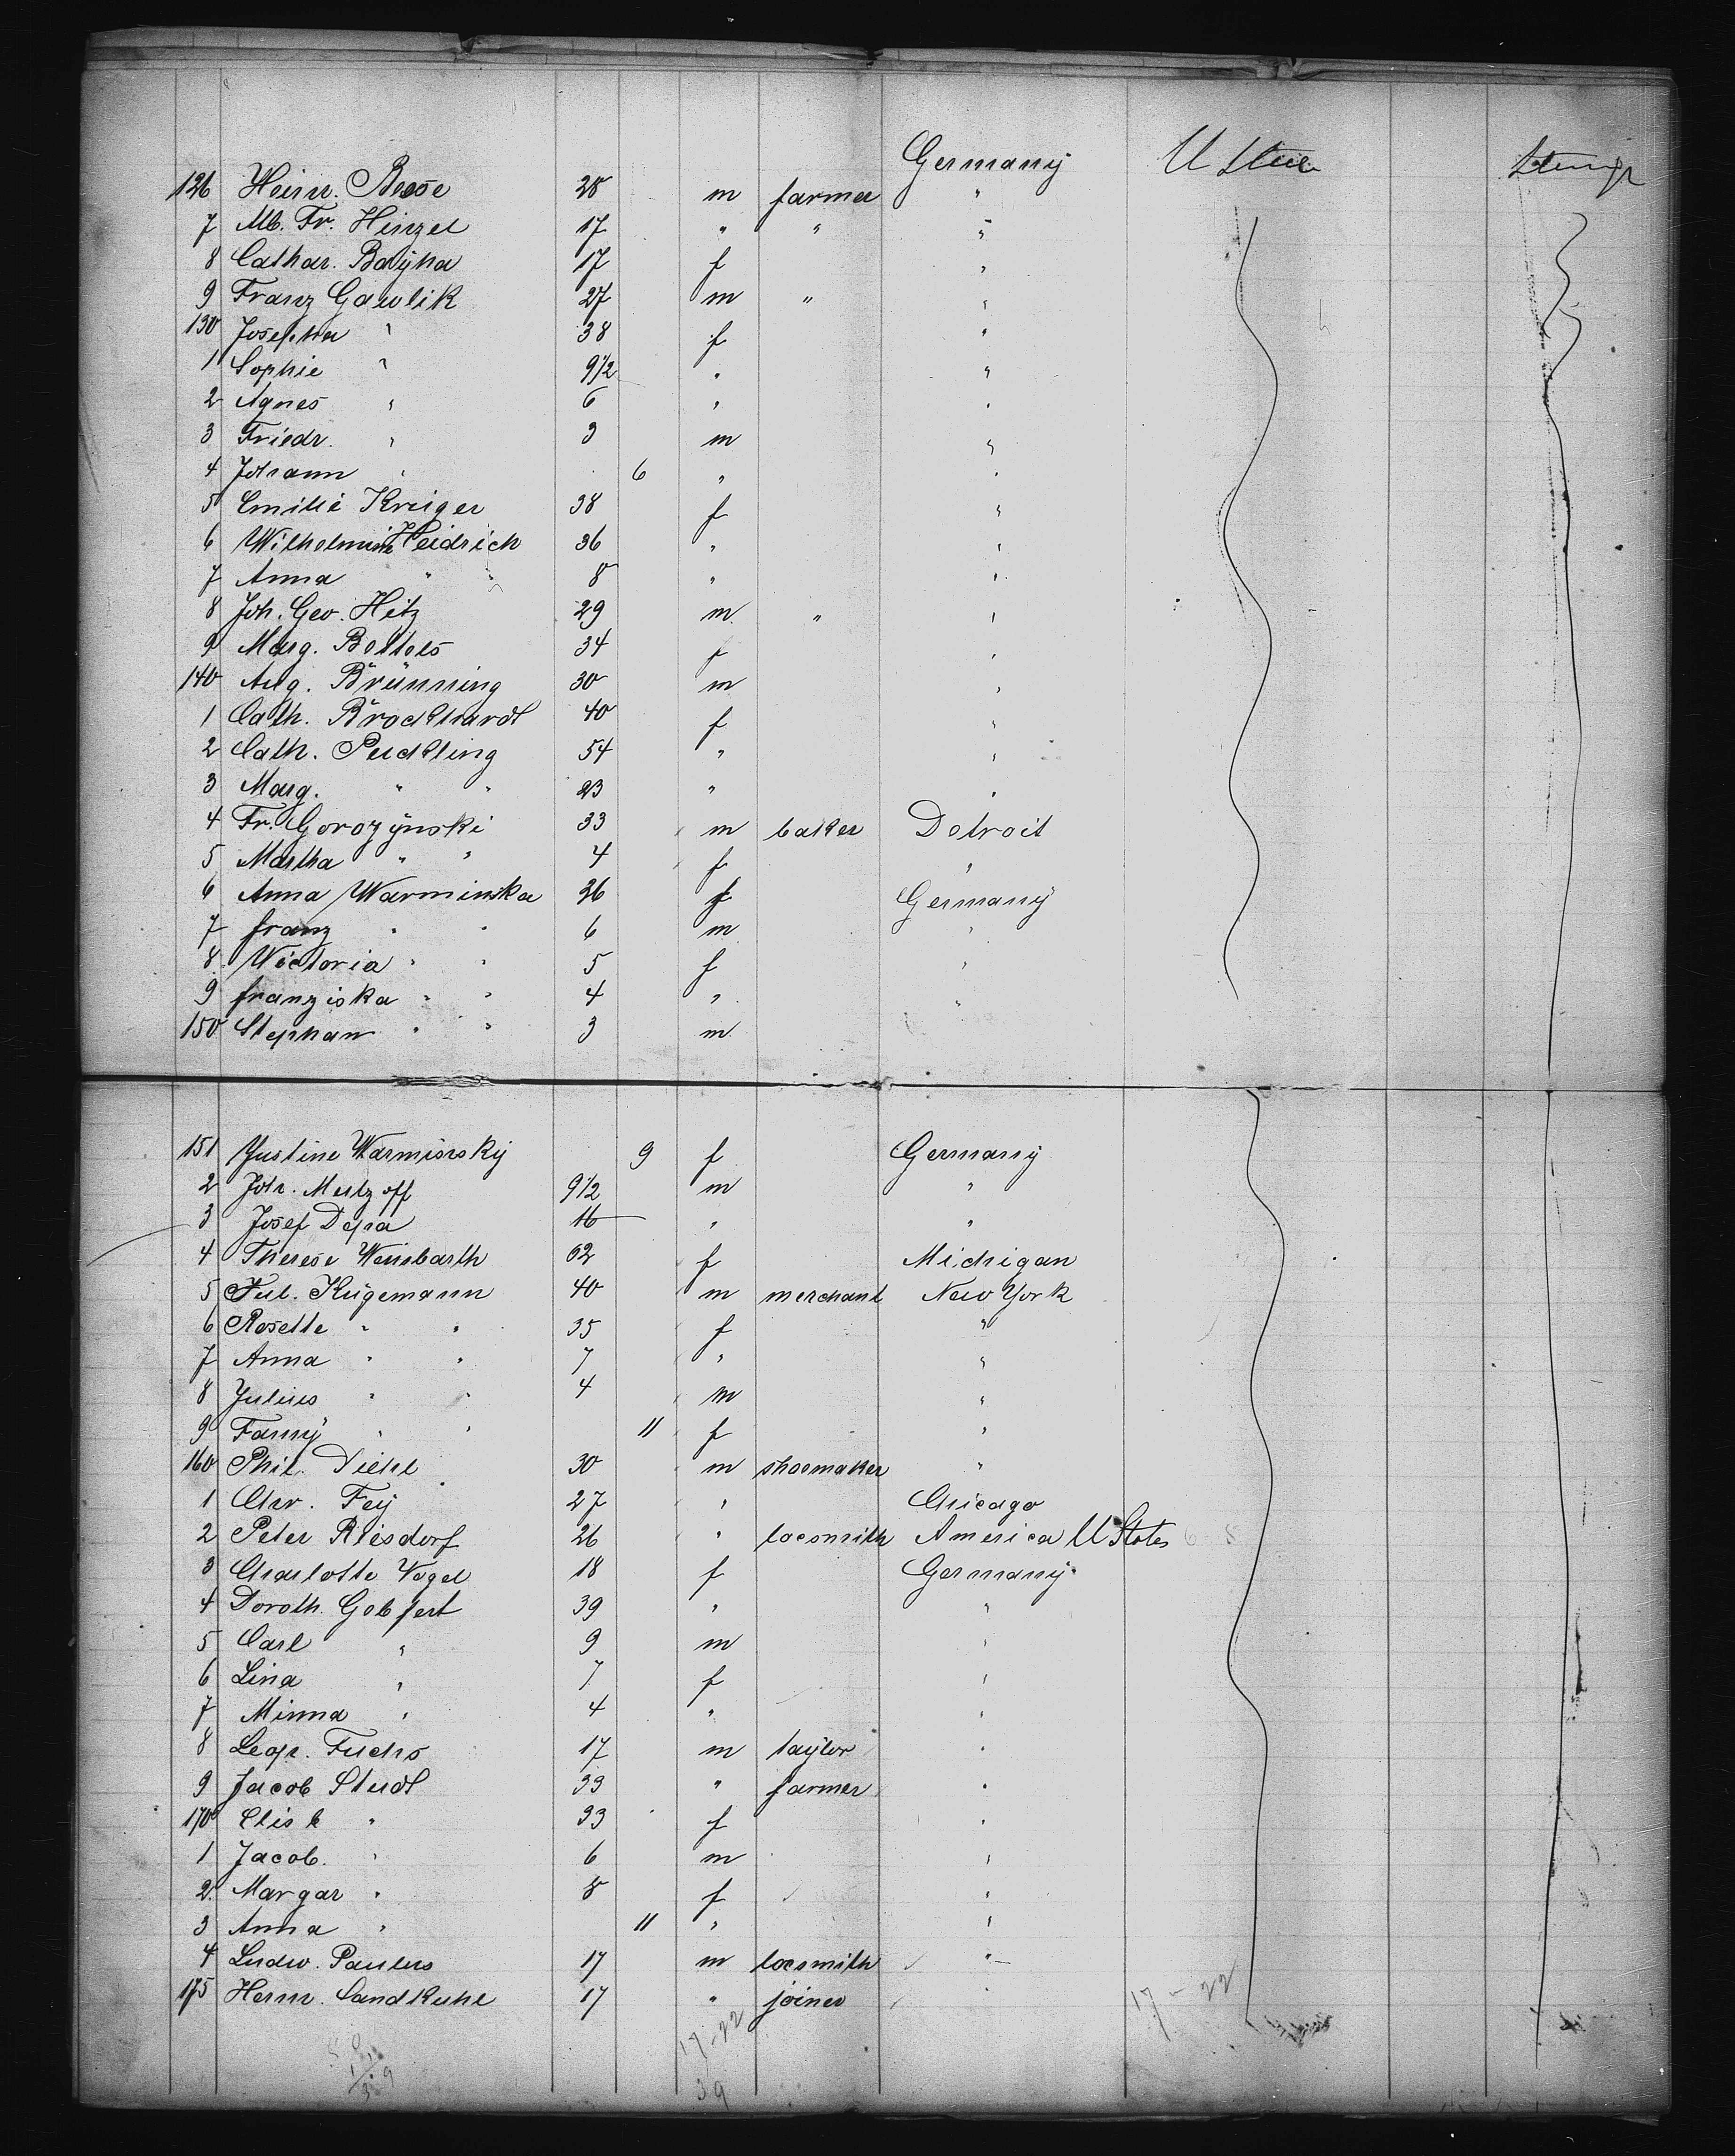 Germany U States Steerage
126 Heinr. Besse 28 m farmer "
7 Alb. Fr. Hinzel 17 " " "
8 Cathar. Bayha 17 f "
9 Franz Gawlik 27 m " "
130 Josepha " 38 f "
1 Sophie " 9 1/2 " "
2 Agnes " 6 " "
3 Friedr. " 3 m "
4 Johann " 6 " "
5 Emilie Krieger 38 f "
6 Wilhelmine Heidrich 36 " "
7 Anna " " 8 " "
8 Joh. Geo. Hitz 29 m " "
9 Marg. Bottels 34 f "
140 Aug. Brünning 30 m "
1 Cath. Brockhardt 40 f "
2 Cath. Peickling 54 " "
3 Marg. " " 23 " "
4 Fr. Gorozÿnski 33 m baker Detroit
5 Martha " " 4 f "
6 Anna Warminska 26 f Germany
7 franz " " 6 m "
8 Wictoria " " 5 f "
9 franziska " " 4 " "
150 Stephan " " 3 m
151 Justine Warminsky 9 f Germany
2 Joh. Mertzoff 9 1/2 m "
3 Josef Depa 16 " "
4 Therese Weinbarth 62 f Michigan
5 Jul. Kugemann 40 m merchant New York
6 Rosette " " 35 f "
7 Anna " " 7 " "
8 Julius " " 4 m "
9 Fanny " " 11 f "
160 Phil. Diehl 30 m shoemaker "
1 Chr. Fey 27 " Chicago
2 Peter Riesdorf 26 " locsmith America U States
3 Charlotte Vogel 18 f Germany
4 Doroth. Gobfert 39 " "
5 Carl " 9 m "
6 Lina " 7 f "
7 Minna " 4 " "
8 Leop. Fuchs 17 m taylor "
9 Jacob Studt 33 " farmer "
170 Elisb " 33 f "
1 Jacob. " 6 m "
2 Margar " 8 f "
3 Anna " 11 " "
4 Ludw. Paulus 17 m locsmith "
175 Herm. Sandkuhl 17 " joiner "
17-22 17-22
39